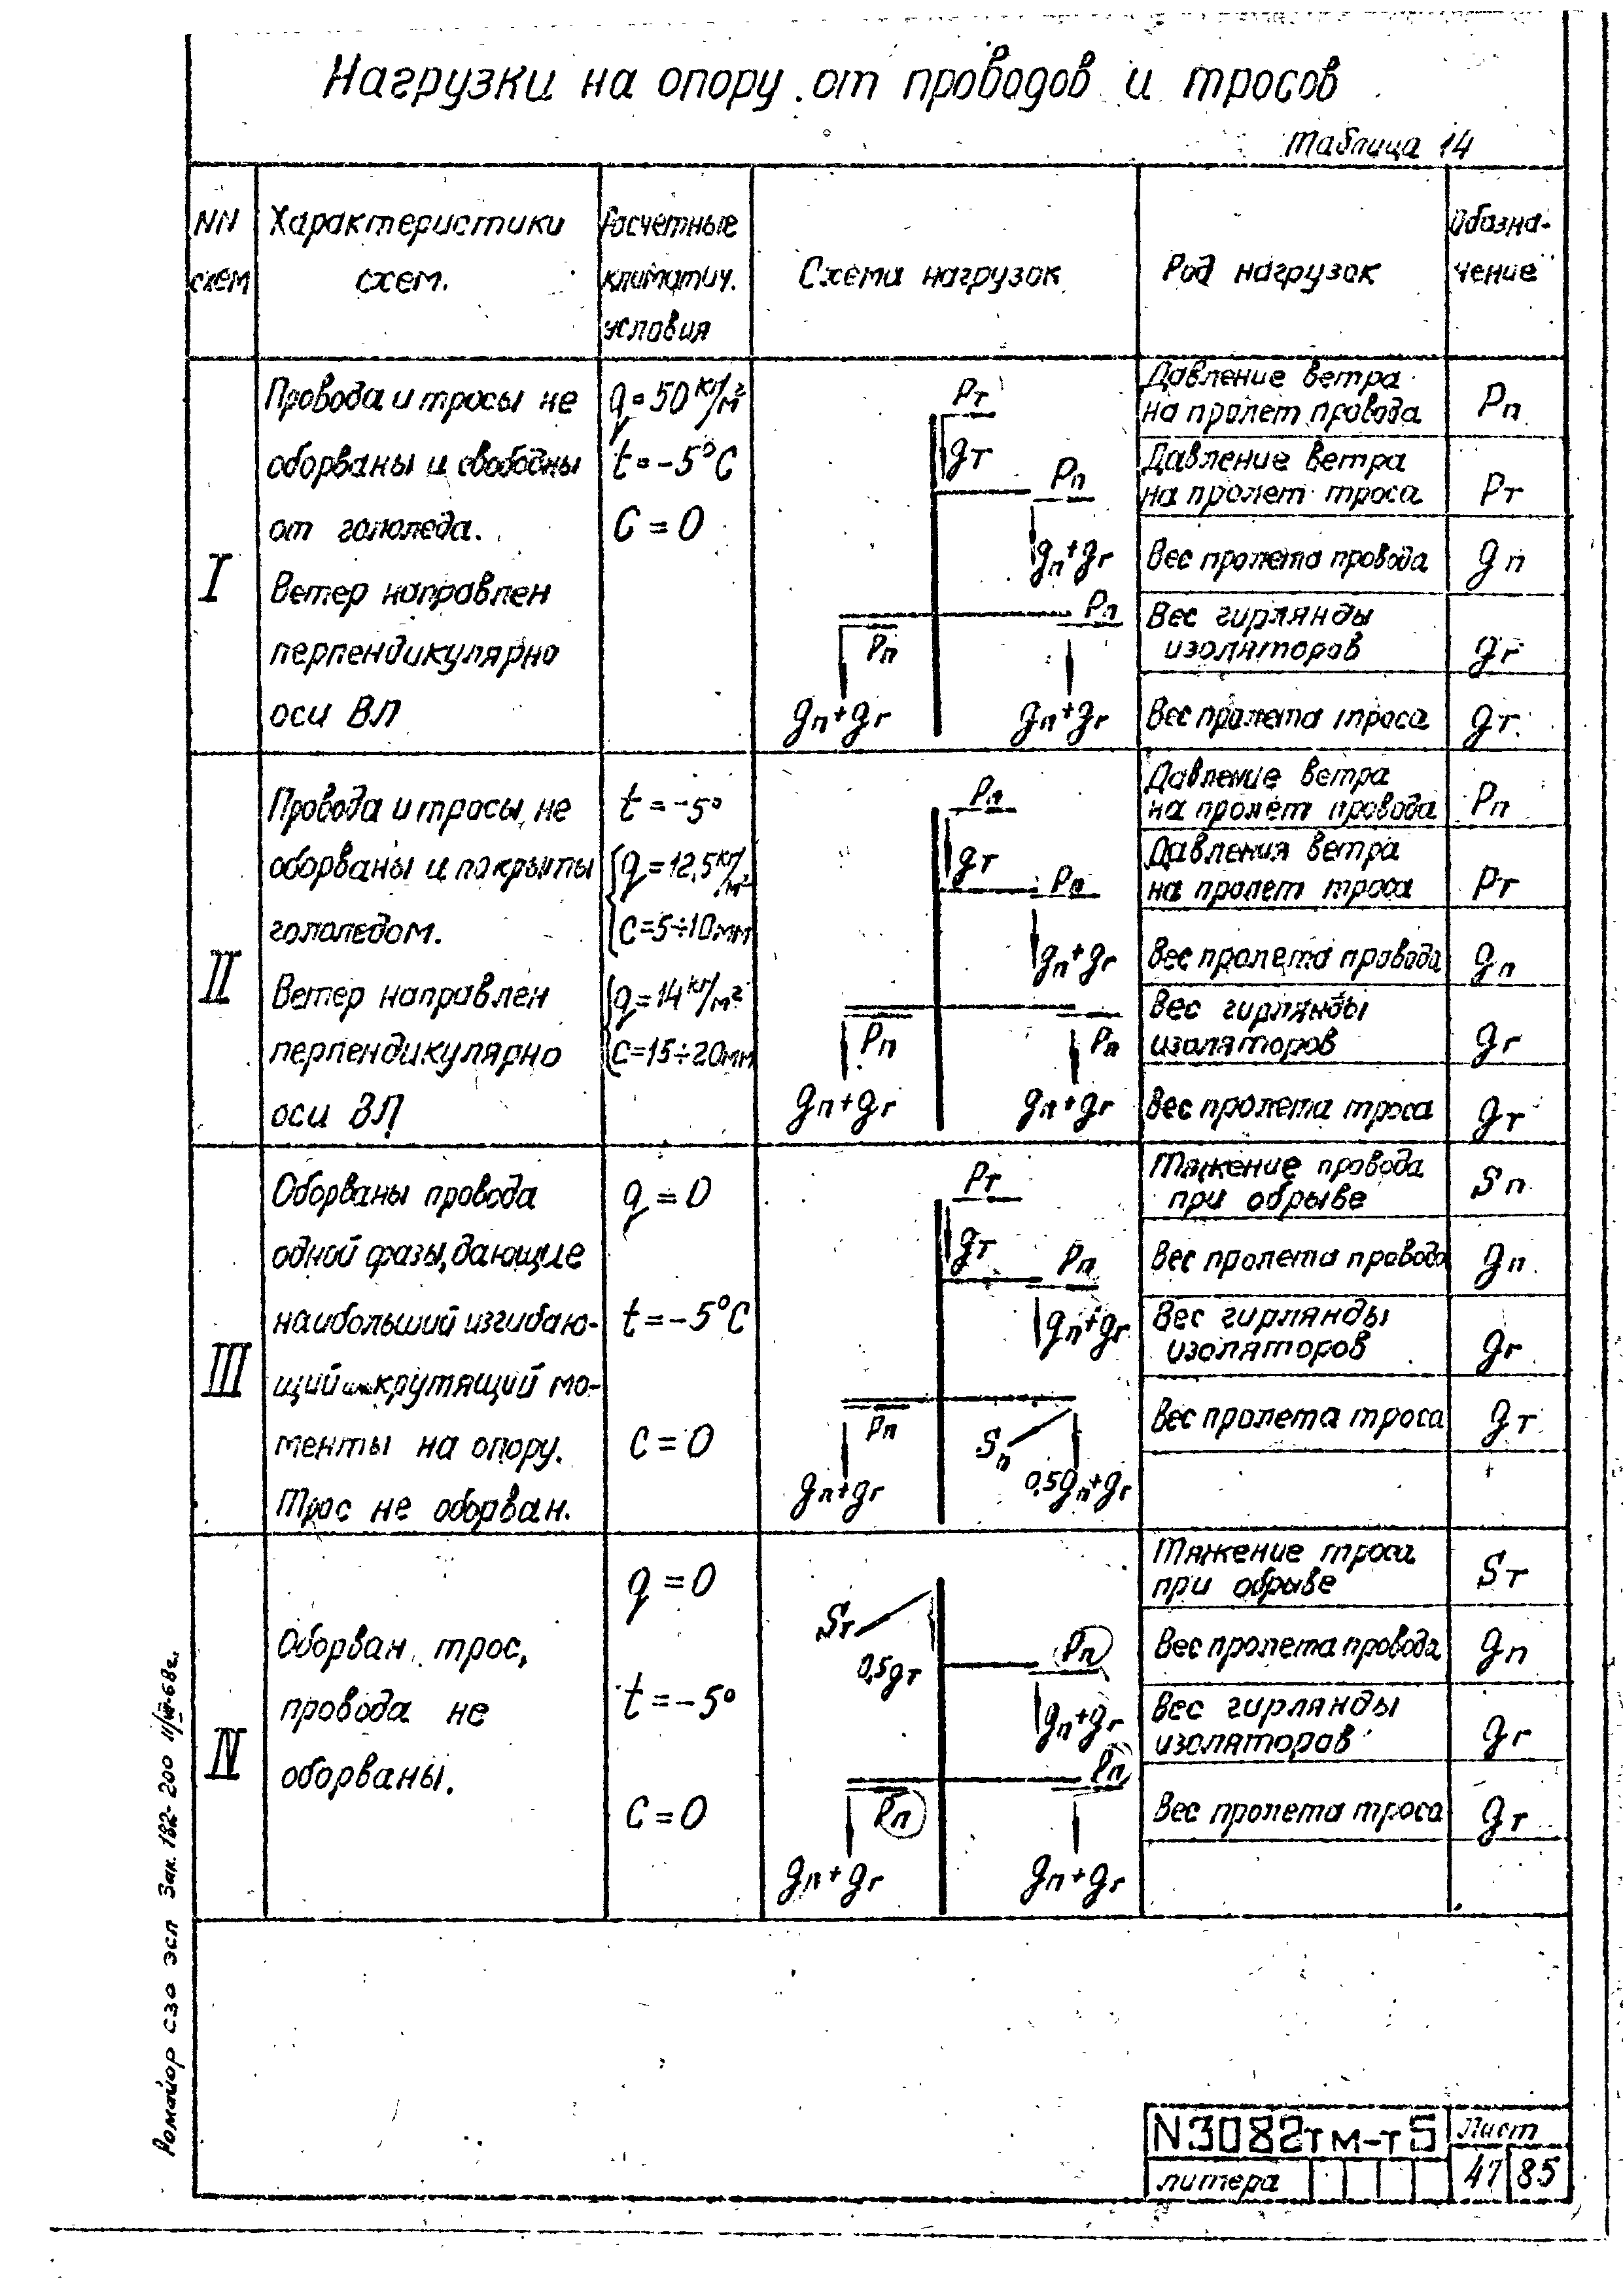 Нагрузки на опору от проводов и тросов
Таблица 14
NN схем
Характеристики схем.
Расчетные климатич. условия
Схема нагрузок
Род нагрузок
Обозна-
чение
I
Провода и тросы не
оборваны и свободны
от гололеда.
Ветер направлен
перпендикулярно
оси ВЛ
q = 50 кг/м²
t = -5°C
C = 0
Pт
gт
Pп
gп+gг
Pп
Pп
gп+gг
gп+gг
Давление ветра
на пролет провода
Pп
Давление ветра
на пролет троса
Pт
Вес пролета провода
gп
Вес гирлянды
изоляторов
gг
Вес пролета троса
gт
II
Провода и тросы не
оборваны и покрыты
гололедом.
Ветер направлен
перпендикулярно
оси ВЛ
t = -5°
q = 12,5 кг/м²
C = 5÷10мм
q = 14 кг/м²
C = 15÷20мм
Pп
gт
Pп
gп+gг
Pп
Pп
gп+gг
gп+gг
Давление ветра
на пролет провода
Pп
Давления ветра
на пролет троса
Pт
Вес пролета провода
gп
Вес гирлянды
изоляторов
gг
Вес пролета троса
gт
III
Оборваны провода
одной фазы, дающие
наибольший изгибаю-
щий или крутящий мо-
менты на опору.
Трос не оборван.
q = 0
t = -5°C
C = 0
Pт
gт
Pп
gп+gг
Pп
Sп
gп+gг
0,5gп+gг
Тяжение провода
при обрыве
Sп
Вес пролета провода
gп
Вес гирлянды
изоляторов
gг
Вес пролета троса
gт
IV
Оборван трос,
провода не
оборваны.
q = 0
t = -5°
C = 0
Sт
0,5gт
Pп
gп+gг
Pп
Pп
gп+gг
gп+gг
Тяжение троса
при обрыве
Sт
Вес пролета провода
gп
Вес гирлянды
изоляторов
gг
Вес пролета троса
gт
Ромайор СЗО ЭСП Зак. 182-200 11/VII-68г.
N3082тм-т5
Лист
литера
47
85